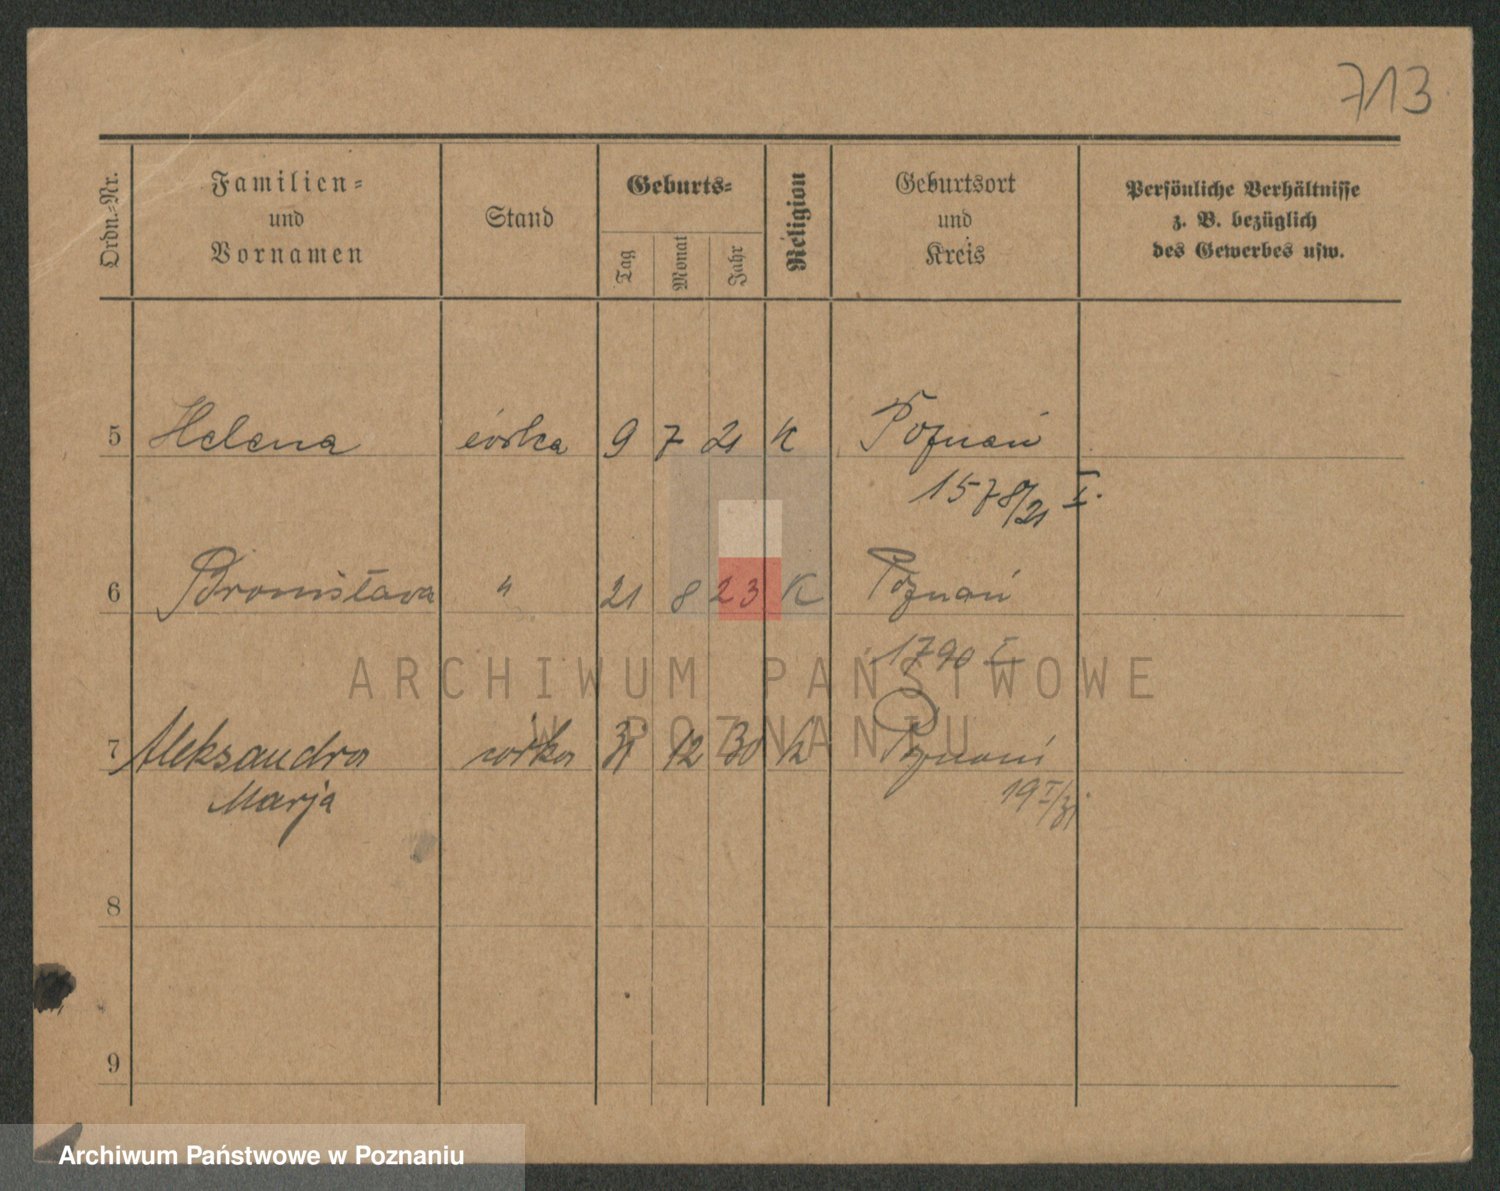 713
Ordn.-Nr.
Familien-
und
Vornamen
Stand
Geburts-
Tag
Monat
Jahr
Religion
Geburtsort
und
Kreis
Persönliche Verhältnisse
z. B. bezüglich
des Gewerbes usw.
5 Helena córka 9 7 21 K Poznań
1578/21 I.
6 Bronisława " 21 8 23 K Poznań
1790 I
7 Aleksandra córka 31 12 30 K Poznań
Marja 19 I/31
8
9
ARCHIWUM PAŃSTWOWE
W POZNANIU
Archiwum Państwowe w Poznaniu